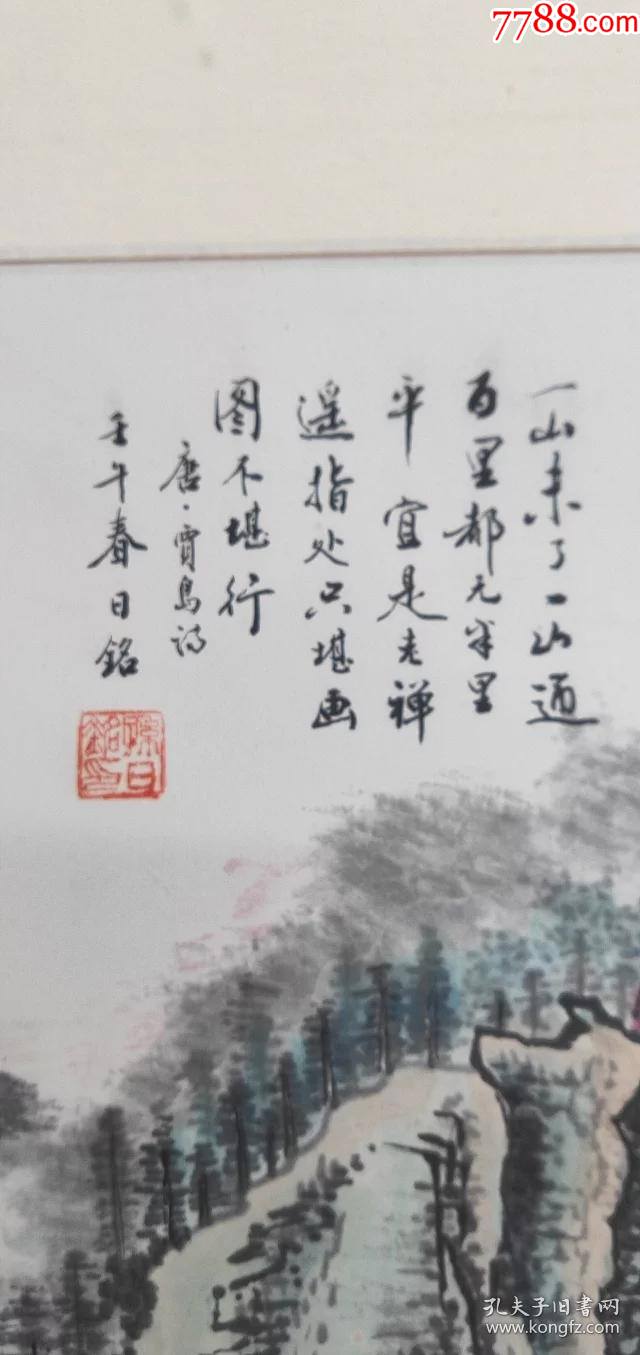 7788.com
一山未了一山通
百里都元半里
平宜是老禅
遥指处只堪画
图不堪行
唐·贾岛诗
壬午春日铭
孔夫子旧书网
www.kongfz.com